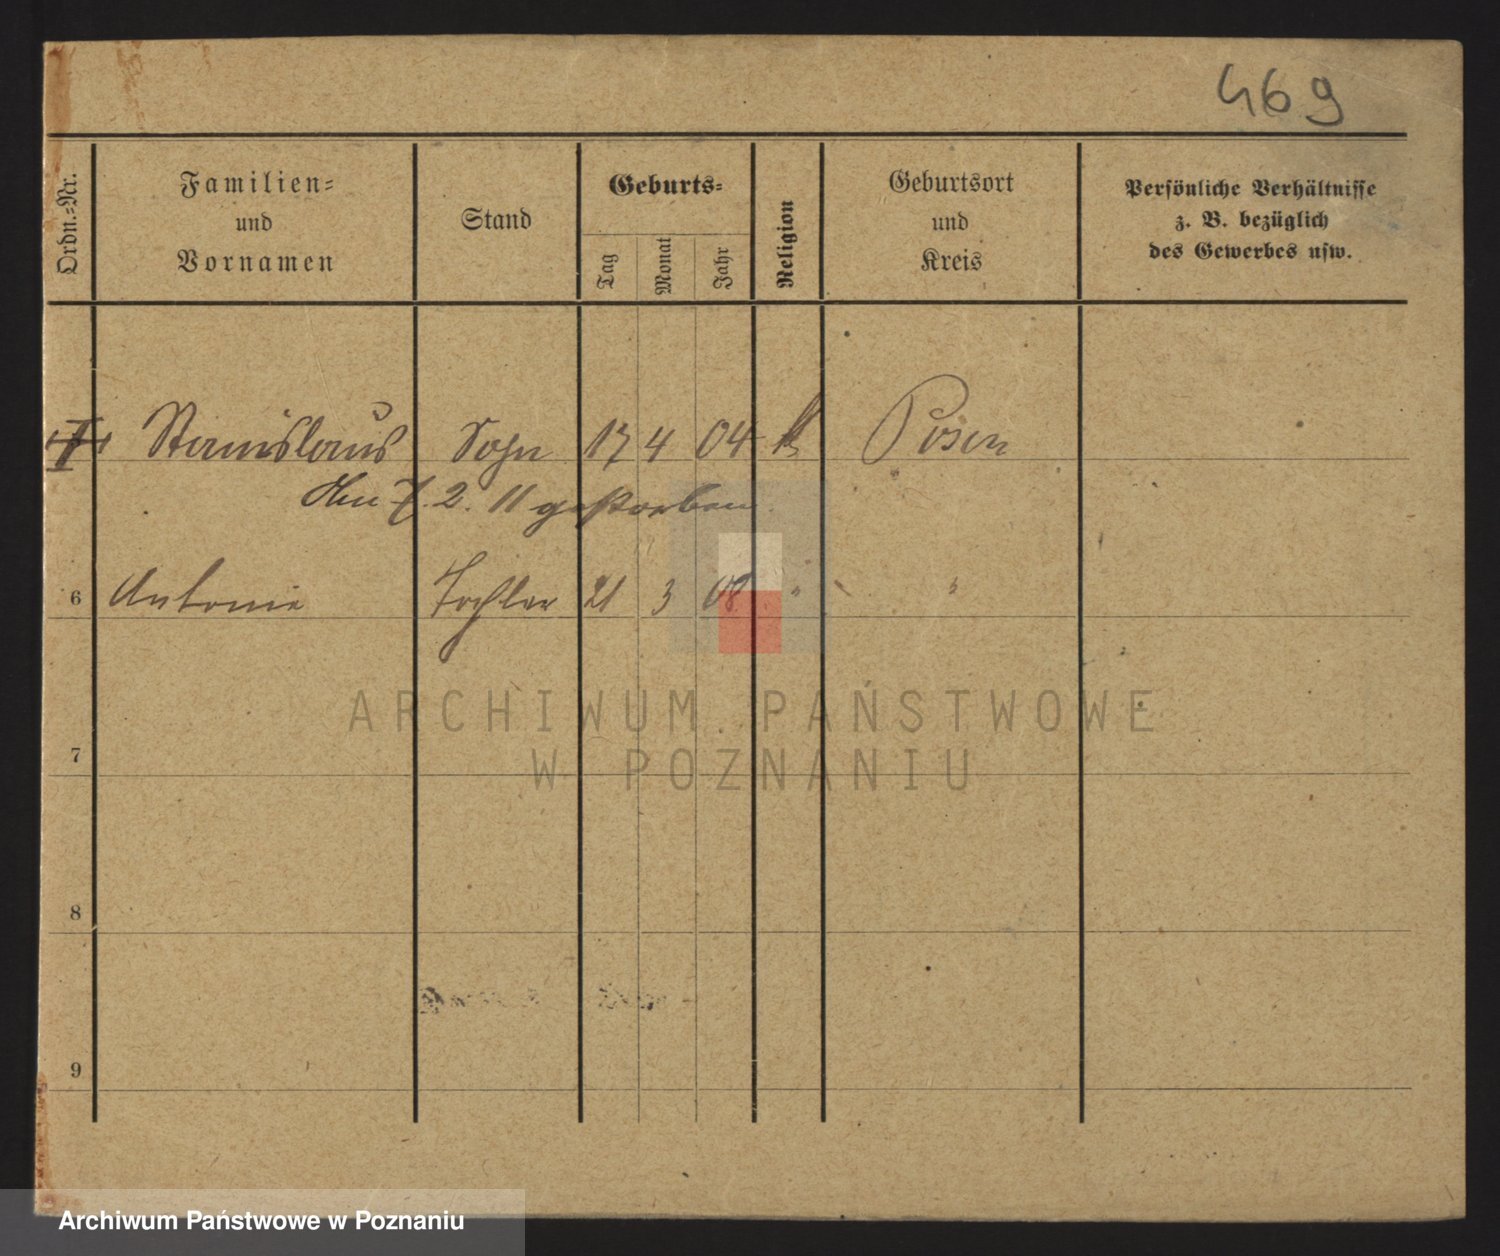 469
Ordn.-Nr.
Familien-
und
Vornamen
Stand
Geburts-
Tag
Monat
Jahr
Religion
Geburtsort
und
Kreis
Persönliche Verhältnisse
z. B. bezüglich
des Gewerbes usw.
Stanislaus Sohn 17 4 04 k Posen
Am 7. 2. 11 gestorben.
6 Antonie Tochter 21 3 08 " "
ARCHIWUM PAŃSTWOWE
W POZNANIU
7
8
9
Archiwum Państwowe w Poznaniu